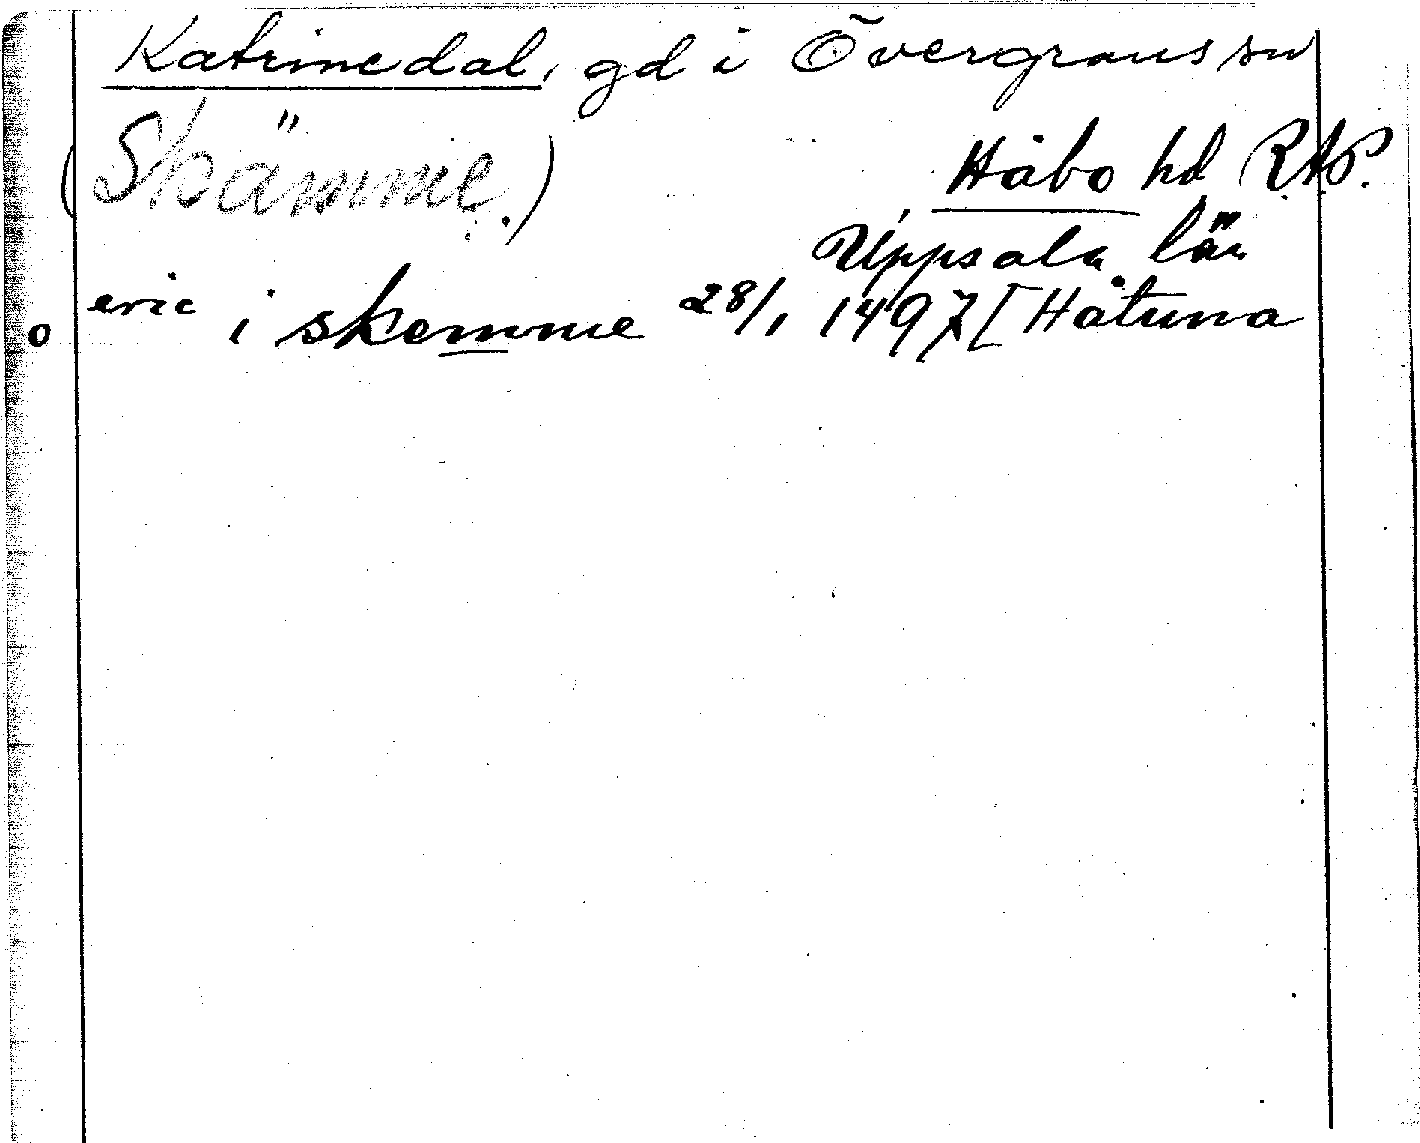 Katrinedal, gd i Övergrans sn
(Skämme.) Håbo hd RAP.
Uppsala län
o eric i skemme 28/1 1497 [Håtuna